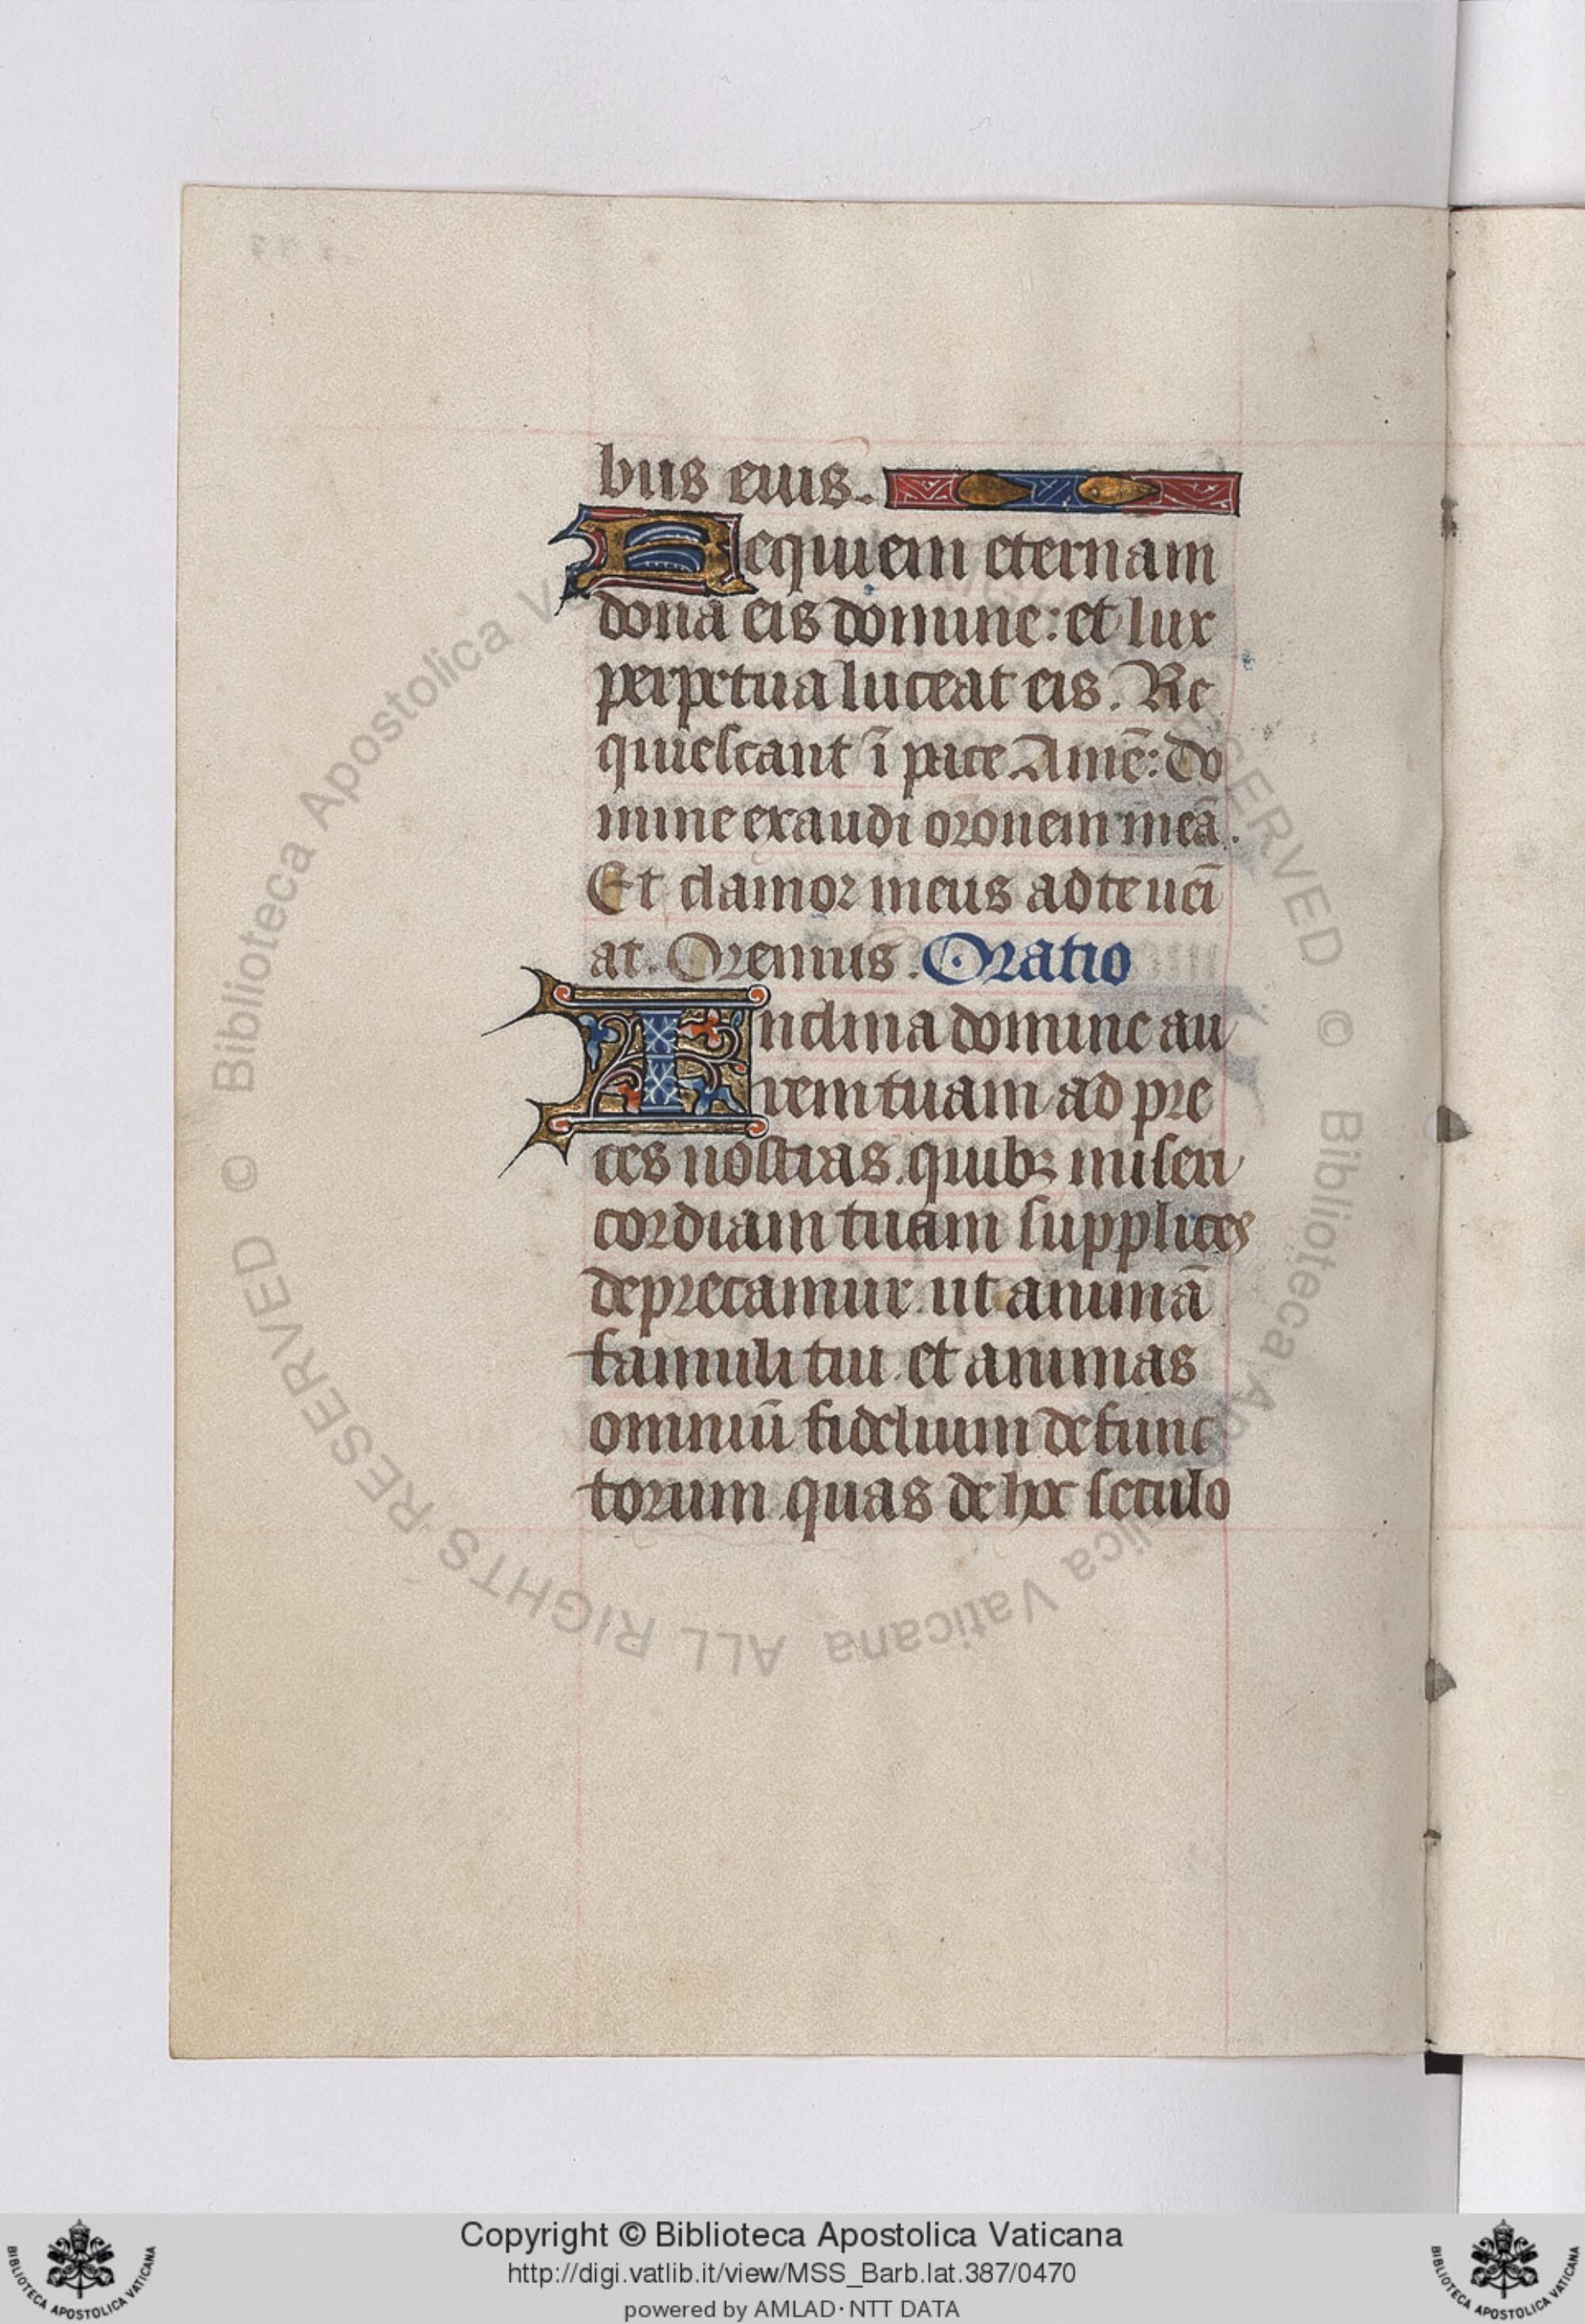 bus eius.
Requiem eternam
dona eis domine: et lux
perpetua luceat eis. Re
quiescant ī pace. Amē: do
mine exaudi oronem meā.
Et clamor meus ad te ueī
at. Oremus. Oratio
Inclina domine au
rem tuam ad pre
ces nostras. quibꝫ miseri
cordiam tuam supplices
deprecamur. ut animā
famuli tui. et animas
omniū fidelium defunc
torum quas de hoc seculo
© Biblioteca Apostolica Vaticana ALL RIGHTS RESERVED
© Biblioteca Apostolica Vaticana ALL RIGHTS RESERVED
Copyright © Biblioteca Apostolica Vaticana
http://digi.vatlib.it/view/MSS_Barb.lat.387/0470
powered by AMLAD·NTT DATA
BIBLIOTECA APOSTOLICA VATICANA
BIBLIOTECA APOSTOLICA VATICANA